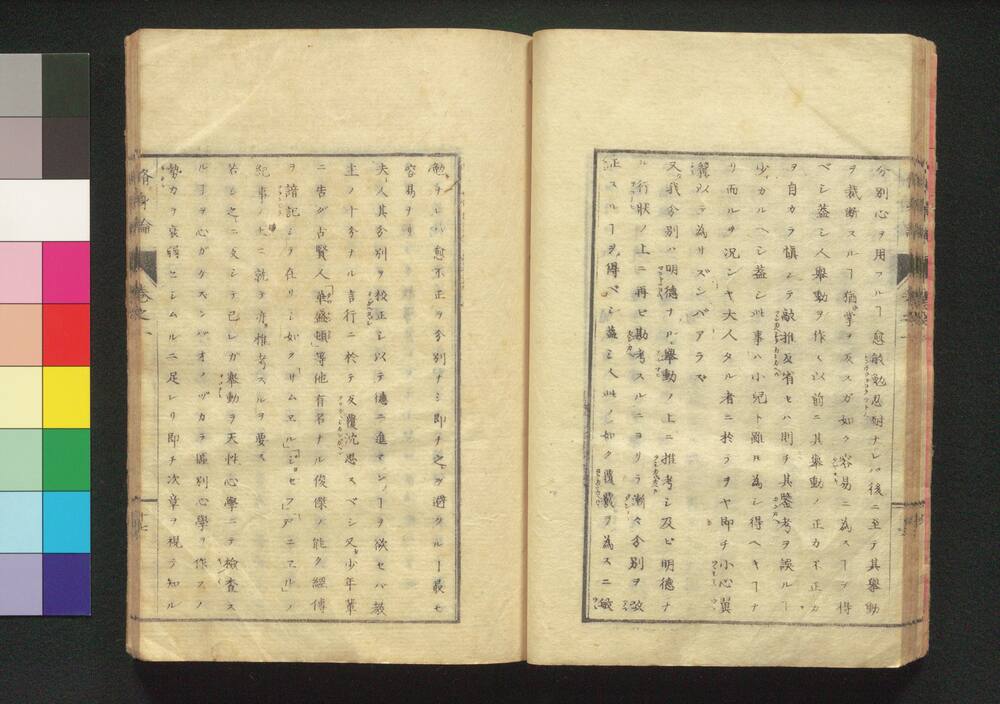 分別心ヲ用フルヿ愈敏勉忍耐ナレバ後ニ至テ其舉動
ヲ裁断スルヿ猶掌ヲ反スガ如ク容易ニ為スヿヲ得
ベシ蓋シ人舉動ヲ作ス以前ニ其舉動ノ正カ不正カ
ヲ自カラ愼シテ敲推反省セハ則チ其鑒考ヲ誤ルヿ
少カルヘシ蓋シ此事ハ小兒ト雖𪜈為シ得ヘキヿナ
リ而ルヲ況ンヤ大人タル者ニ於テヲヤ即チ小心翼
䕃以テ為リズンバアラス
又我分別ハ明德ナル舉動ノ上ニ推考シ及ビ明德ナ
ル行狀ノ上ニ再ビ勘考スルニヨリテ漸々分別ヲ改
正スルヿヲ得ベシ蓋シ人此ノ如ク覆載ヲ為スニ敏
勉ヲレバ愈不正ヲ分別ナシ即チ之ヲ避クルヿ最モ
容易ヲリ
夫人其分別ヲ校正シ以テ德ニ進マンヿヲ欲セバ教
主ノ十分ナル言行ニ於テ反覆沈思スベシ又少年輩
ニ告グ古賢人「華盛頓」等他有名ナル俊傑ノ能ク經傳
ヲ諳記シテ在リシ如ク「サムエル」「ジョセフ」「ダニエル」ノ
紀事ノ上ニ就テ亦推考スルヲ要ス
若シ之ニ反シテ己レガ舉動ヲ天性心學ニテ檢査ス
ルヿヲ心ガケズンバオノヅカラ區別心學ヲ作スノ
勢力ヲ衰弱セシムルニ足レリ即チ次章ヲ視テ知ル
脩身論
卷之一